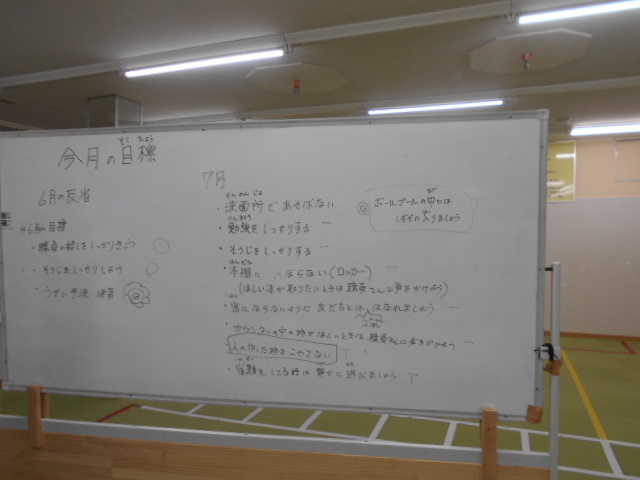 もく ひょう
今月の目標
6月の反省
6月の目標
・職員の話をしっかりきこう
・そうじをしっかりしよう
・うがい 手洗
7月
せんめんじょ
・洗面所であそばない
べんきょう
・勉強をしっかりする
・そうじをしっかりする
ほんだな
・本棚に のぼらない(ロッカー)
(ほしい本が取りたいときは職員さんに声をかけよう)
・密にならないように 友だちとははなれましょう
・カウンターの中の物がほしいときは 職員さんに声をかけよう
人の作った物をこわさない
・宿題をしてる時は 静かに 遊びましょう
ボールプールの中には
しずかに入りましょう